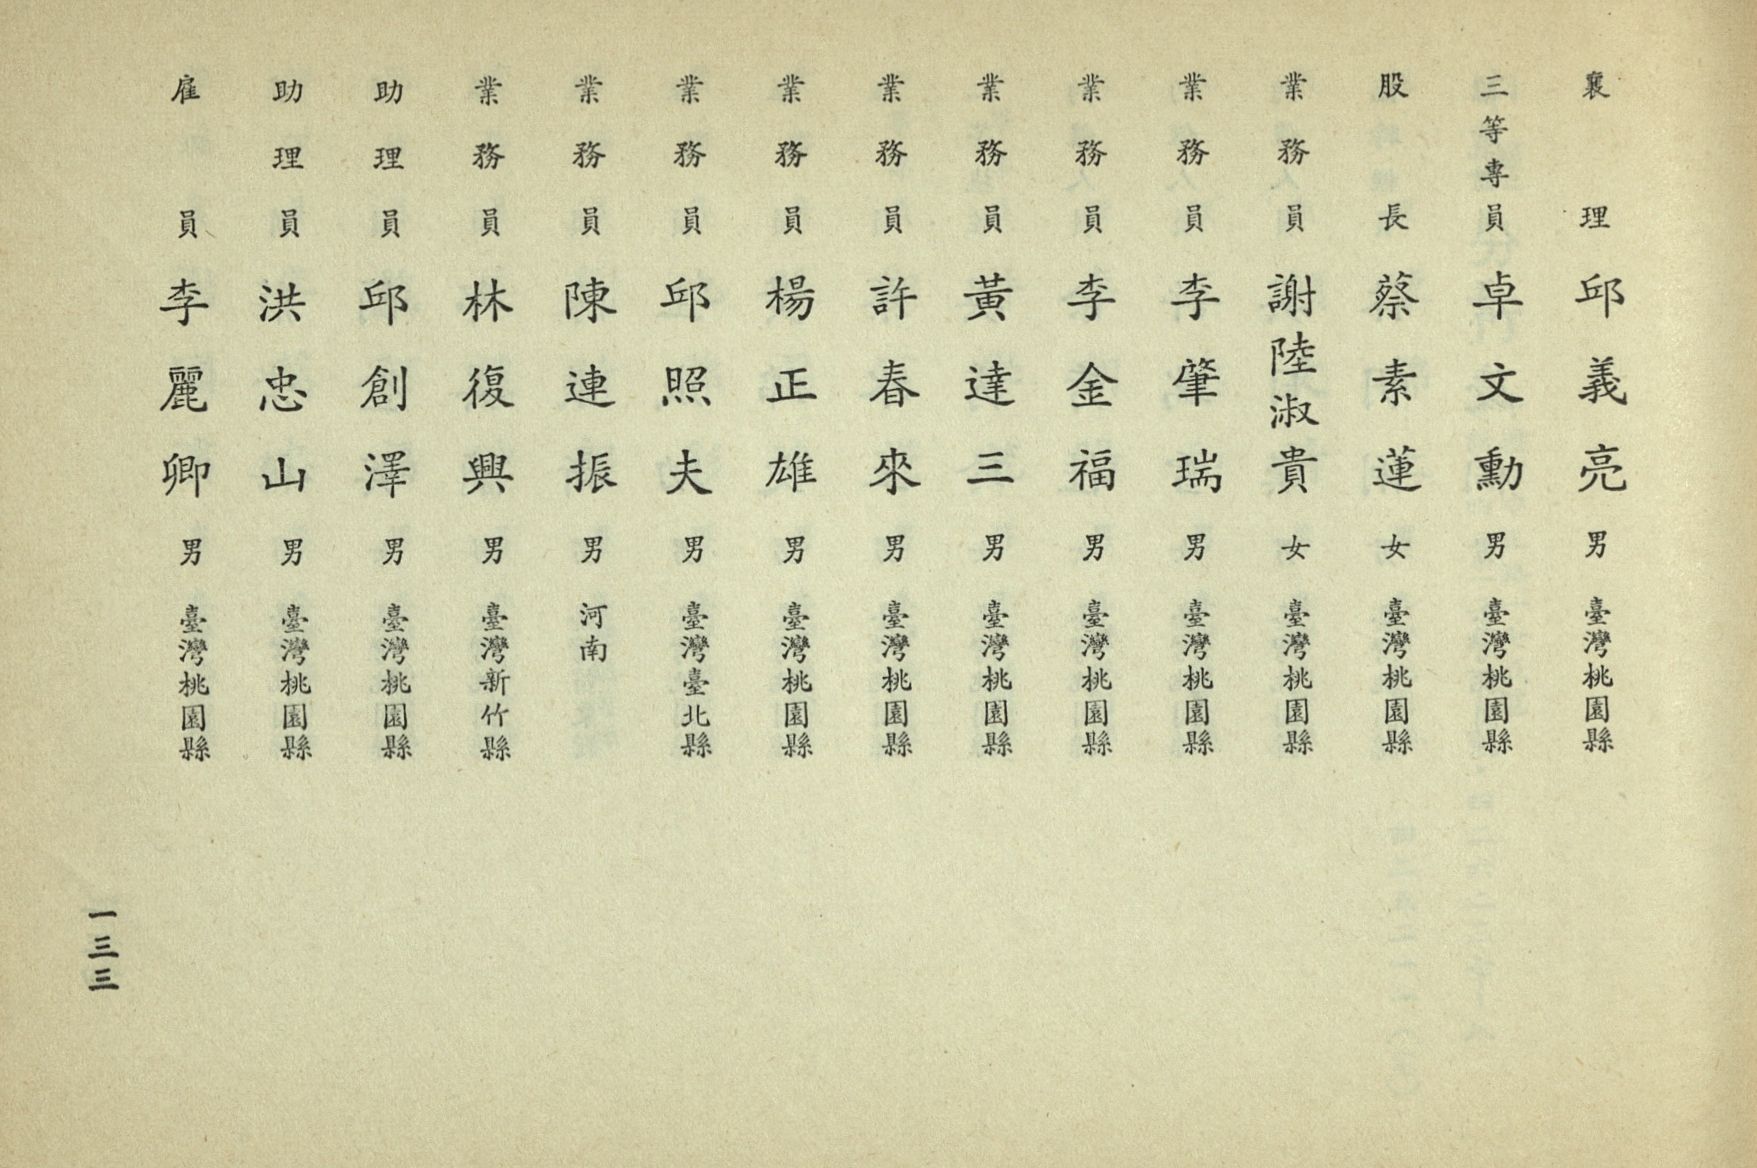 襄理邱義亮男臺灣桃園縣
三等專員卓文勳男臺灣桃園縣
股長蔡素蓮女臺灣桃園縣
業務員謝陸淑貴女臺灣桃園縣
業務員李肇瑞男臺灣桃園縣
業務員李金福男臺灣桃園縣
業務員黃達三男臺灣桃園縣
業務員許春來男臺灣桃園縣
業務員楊正雄男臺灣桃園縣
業務員邱照夫男臺灣臺北縣
業務員陳連振男河南
業務員林復興男臺灣新竹縣
助理員邱創澤男臺灣桃園縣
助理員洪忠山男臺灣桃園縣
雇員李麗卿男臺灣桃園縣
一三三